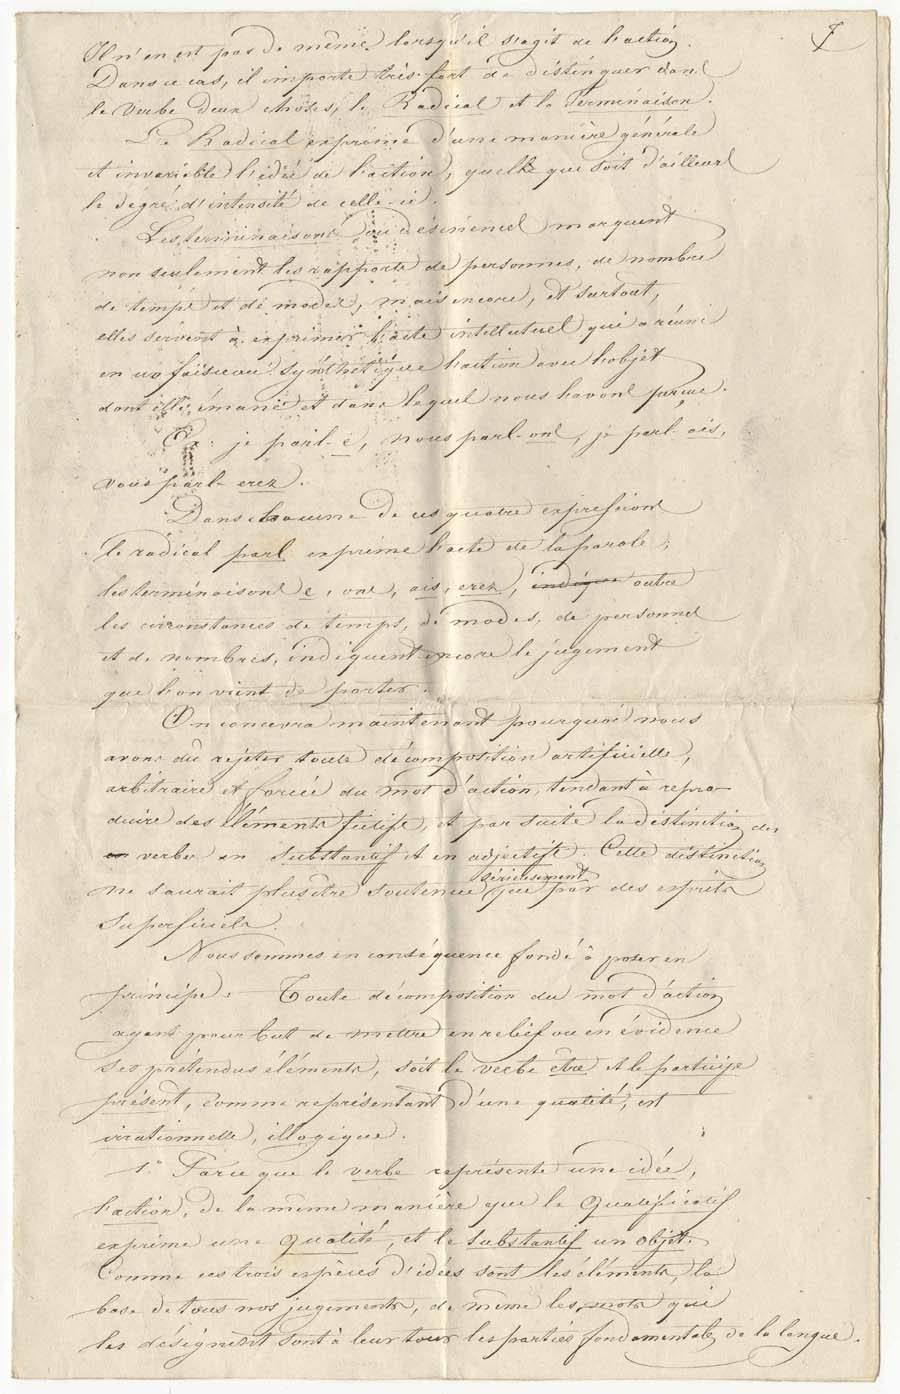 7
Il n'en est pas de même lorsqu'il s'agit de l'action.
Dans ce cas, il importe très-fort de distinguer dans
le verbe deux choses, le Radical et la Terminaison.
Le Radical exprime d'une manière générale
et invariable l'idée de l'action, quelle que soit d'ailleurs
le degré d'intensité de celle-ci.
Les terminaisons ou désinences marquent
non seulement les rapports de personnes, de nombre
de temps et de modes, mais encore, et surtout,
elles servent à exprimer l'acte intellectuel qui a réuni
en un faisceau synthétique l'action avec l'objet
dont elle émane et dans lequel nous l'avons perçue.
Ex: je parl-e, nous parl-ons, je parl-ais,
vous parl-erez.
Dans chacune de ces quatre expressions
le radical parl exprime l'acte de la parole;
les terminaisons e, ons, ais, erez, indique outre
les circonstances de temps, de modes, de personnes
et de nombres, indiquent encore le jugement
que l'on vient de porter.
On concevra maintenant pourquoi nous
avons dû rejeter toute décomposition artificielle,
arbitraire et forcée du mot d'action, tendant à repro-
duire des éléments fictifs, et par suite la distinction des
verbes en substantif et en adjectifs. Cette distinction
ne saurait plus être soutenue sérieusement que par des esprits
superficiels.
Nous sommes en conséquence fondé à poser en
principe: Toute décomposition du mot d'action
ayant pour but de mettre en relief ou en évidence
ses prétendus éléments, soit le verbe être et le participe
présent, comme représentant d'une qualité, est
irrationnelle, illogique.
1.° Parce que le verbe représente une idée,
l'action, de la même manière que le Qualificatif
exprime une qualité, et le substantif un objet.
Comme ces trois espèces d'idées sont les éléments, la
base de tous nos jugements, de même les mots qui
les désignent sont à leur tour les parties fondamentales de la langue.